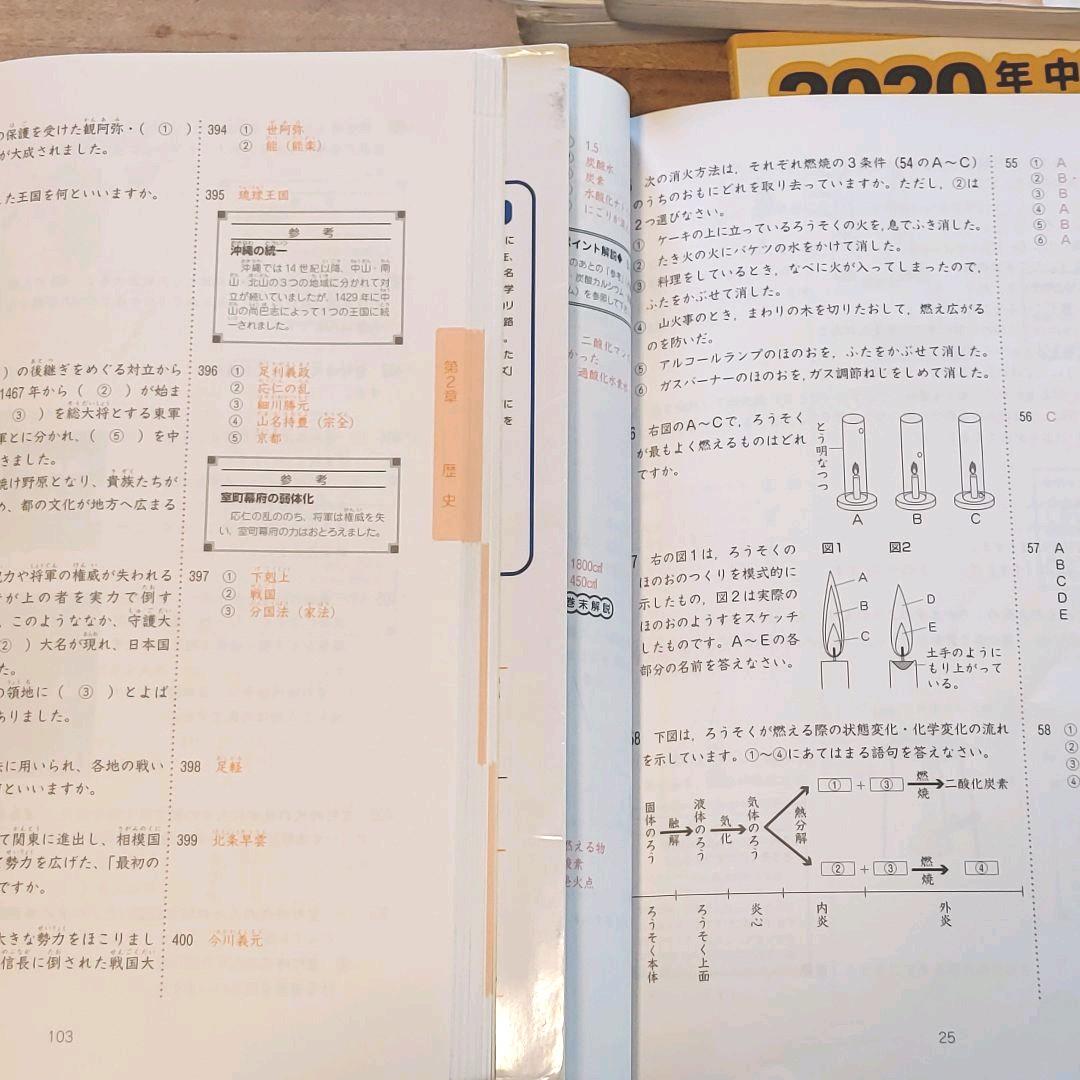 2020年中
の保護を受けた観阿弥・( ① )
が大成されました。
394 ① 世阿弥
② 能（能楽）
た王国を何といいますか。
395 琉球王国
参考
沖縄の統一
沖縄では14世紀以降，中山・南
山・北山の3つの地域に分かれて対
立が続いていましたが，1429年に中
山の尚巴志によって1つの王国に統
一されました。
)の後継ぎをめぐる対立から
1467年から( ② )が始ま
③ )を総大将とする東軍
軍とに分かれ，( ⑤ )を中
きました。
焼け野原となり，貴族たちが
め，都の文化が地方へ広まる
396 ① 足利義政
② 応仁の乱
③ 細川勝元
④ 山名持豊（宗全）
⑤ 京都
参考
室町幕府の弱体化
応仁の乱ののち，将軍は権威を失
い，室町幕府の力はおとろえました。
力や将軍の権威が失われる
が上の者を実力で倒す
，このようななか，守護大
② )大名が現れ，日本国
た。
の領地に( ③ )とよば
ありました。
397 ① 下剋上
② 戦国
③ 分国法（家法）
に用いられ，各地の戦い
何といいますか。
398 足軽
て関東に進出し，相模国
て勢力を広げた，「最初の
ですか。
399 北条早雲
大きな勢力をほこりまし
信長に倒された戦国大
400 今川義元
第2章 歴史
103
1.5
炭酸水
炭素
ポイント解説◆
二酸化マン
かった
過酸化水素水
1800cm³
450cm³
巻末解説
燃える物
酸素
発火点
次の消火方法は，それぞれ燃焼の3条件（54のA～C）
のうちのおもにどれを取り去っていますか。ただし，②は
2つ選びなさい。
① ケーキの上に立っているろうそくの火を，息でふき消した。
② たき火の火にバケツの水をかけて消した。
③ 料理をしているとき，なべに火が入ってしまったので，
ふたをかぶせて消した。
④ 山火事のとき，まわりの木を切りたおして，燃え広がる
のを防いだ。
⑤ アルコールランプのほのおを，ふたをかぶせて消した。
⑥ ガスバーナーのほのおを，ガス調節ねじをしめて消した。
55 ① A
② B・
③ B
④ A
⑤ B
⑥ A
6 右図のA～Cで，ろうそく
が最もよく燃えるものはどれ
ですか。
とう明なつつ
A B C
56 C
7 右の図1は，ろうそくの
ほのおのつくりを模式的に
示したもの，図2は実際の
ほのおのようすをスケッチ
したものです。A～Eの各
部分の名前を答えなさい。
図1 図2
A
B
C
D
E
土手のように
もり上がって
いる。
57 A
B
C
D
E
58 下図は，ろうそくが燃える際の状態変化・化学変化の流れ
を示しています。①～④にあてはまる語句を答えなさい。
58 ①
②
③
④
固体のろう
融解
液体のろう
気化
気体のろう
熱分解
① + ③ 燃焼 二酸化炭素
② + ③ 燃焼 ④
ろうそく本体
ろうそく上面
炎心
内炎
外炎
25